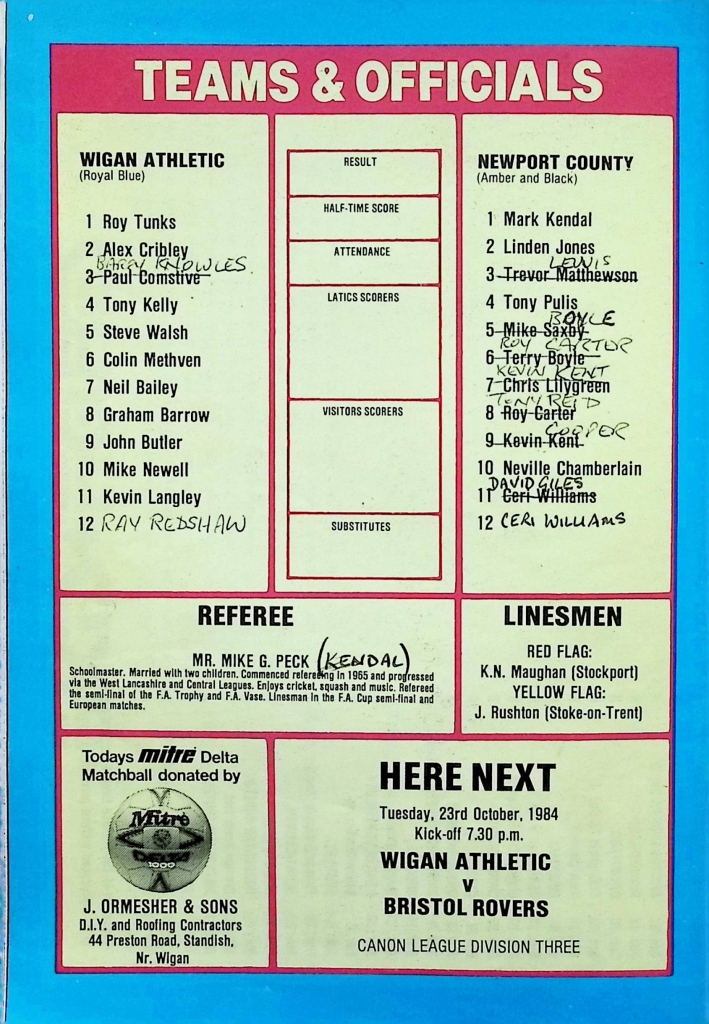 TEAMS & OFFICIALS
WIGAN ATHLETIC
(Royal Blue)
1 Roy Tunks
2 Alex Cribley
BARRY KNOWLES
3 Paul Comstive
4 Tony Kelly
5 Steve Walsh
6 Colin Methven
7 Neil Bailey
8 Graham Barrow
9 John Butler
10 Mike Newell
11 Kevin Langley
12 RAY REDSHAW
RESULT
HALF-TIME SCORE
ATTENDANCE
LATICS SCORERS
VISITORS SCORERS
SUBSTITUTES
NEWPORT COUNTY
(Amber and Black)
1 Mark Kendal
2 Linden Jones
LEWIS
3 Trevor Matthewson
4 Tony Pulis
BOYLE
5 Mike Saxby
ROY CARTER
6 Terry Boyle
KEVIN KENT
7 Chris Lilygreen
TONY REID
8 Roy Carter
COOPER
9 Kevin Kent
10 Neville Chamberlain
DAVID GILES
11 Ceri Williams
12 CERI WILLIAMS
REFEREE
MR. MIKE G. PECK (KENDAL)
Schoolmaster. Married with two children. Commenced refereeing in 1965 and progressed
via the West Lancashire and Central Leagues. Enjoys cricket, squash and music. Refereed
the semi-final of the F.A. Trophy and F.A. Vase. Linesman in the F.A. Cup semi-final and
European matches.
LINESMEN
RED FLAG:
K.N. Maughan (Stockport)
YELLOW FLAG:
J. Rushton (Stoke-on-Trent)
Todays mitre Delta
Matchball donated by
Mitre
DELTA
1000
J. ORMESHER & SONS
D.I.Y. and Roofing Contractors
44 Preston Road, Standish,
Nr. Wigan
HERE NEXT
Tuesday, 23rd October, 1984
Kick-off 7.30 p.m.
WIGAN ATHLETIC
V
BRISTOL ROVERS
CANON LEAGUE DIVISION THREE